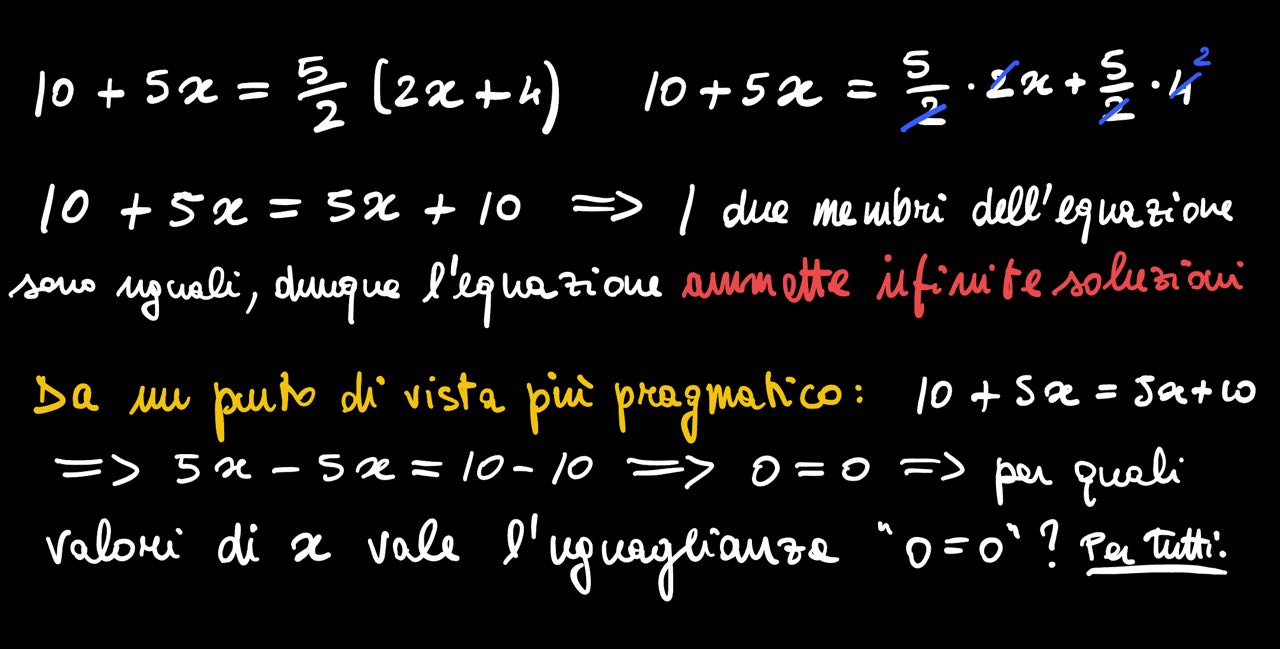 10 + 5x = 5/2 (2x+4) 10 + 5x = 5/2 · 2x + 5/2 · 4 2
10 + 5x = 5x + 10 => I due membri dell'equazione
sono uguali, dunque l'equazione ammette infinite soluzioni
Da un punto di vista più pragmatico: 10 + 5x = 5x+10
=> 5x - 5x = 10 - 10 => 0 = 0 => per quali
valori di x vale l'uguaglianza "0=0"? Per tutti.